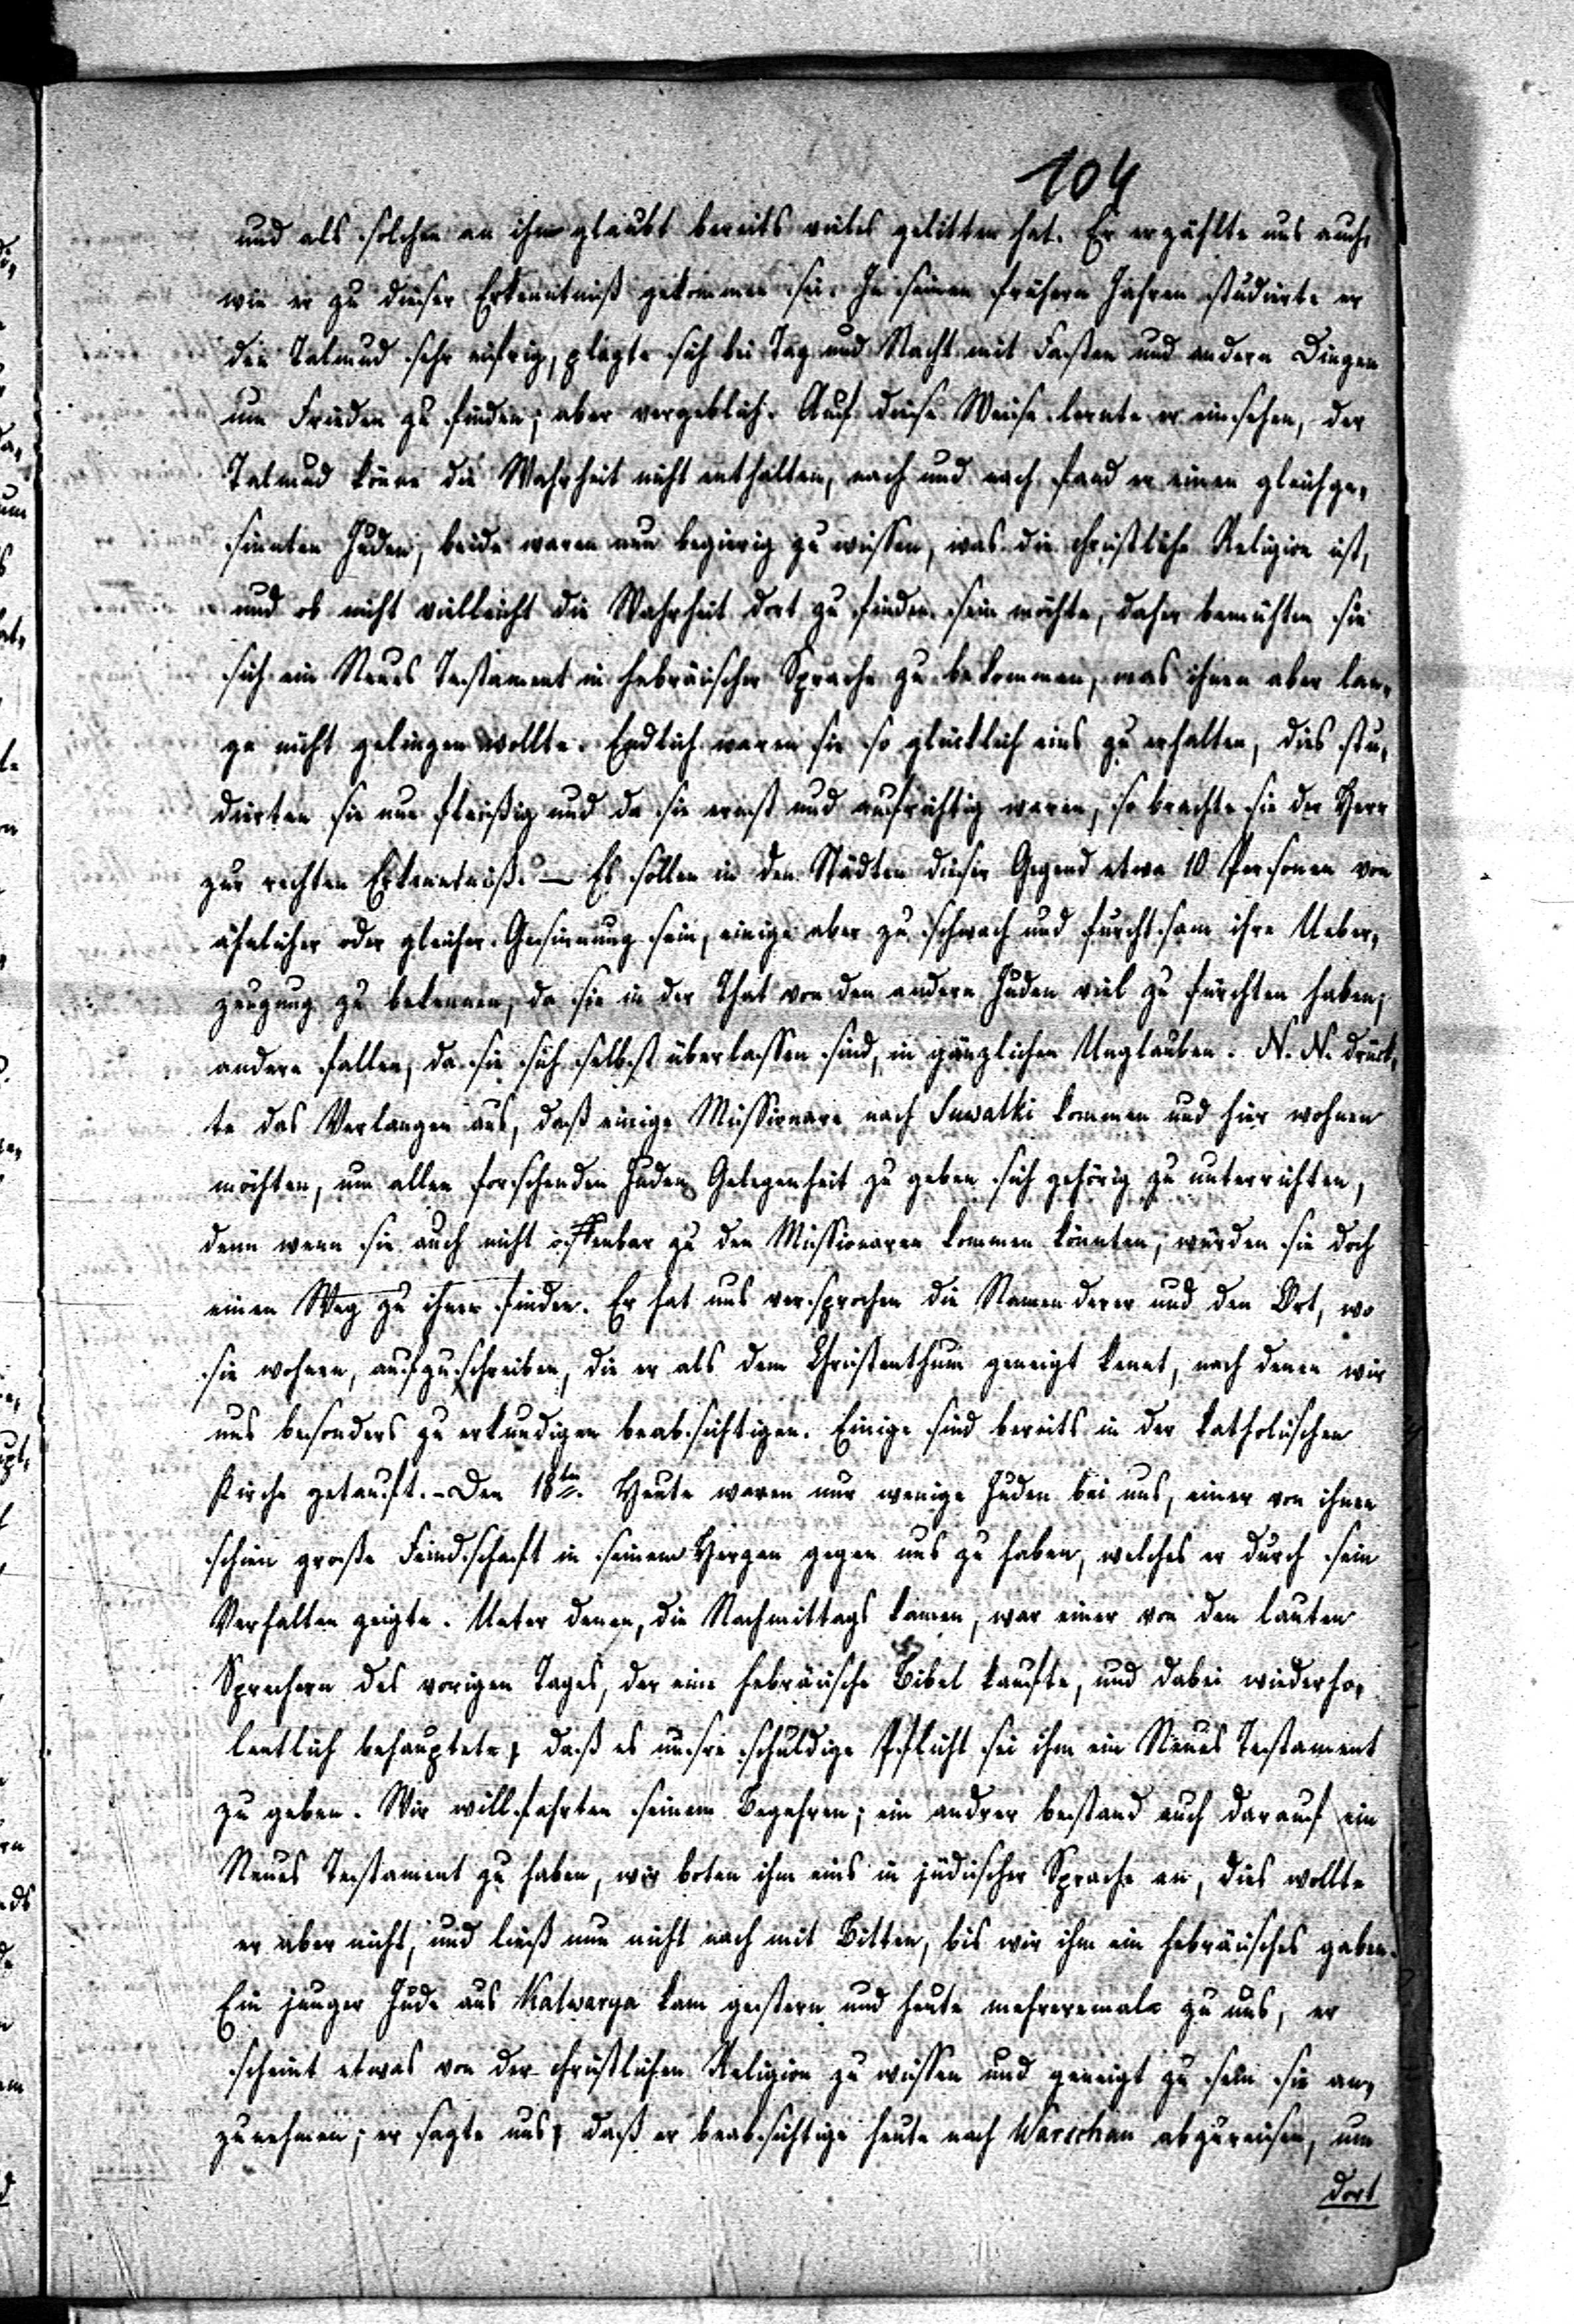 104
und als solchen an ihn glaubt bereits vieles gelitten hat. Er erzählte uns auch,
wie er zu dieser Erkenntniß gekommen sei. In seinen frühern Jahren studierte er
den Talmud sehr eifrig, plagte sich bei Tag und Nacht mit Fasten und andern Dingen
um Frieden zu finden; aber vergeblich. Auf diese Weise lernte er einsehen, der
Talmud könne die Wahrheit nicht enthalten, nach und nach fand er einen gleichge-
sinnten Juden, beide waren nun begierig zu wissen, was die christliche Religion ist,
und ob nicht vielleicht die Wahrheit dort zu finden sein möchte, daher bemühten sie
sich ein Neues Testament in hebräischer Sprache zu bekommen, was ihnen aber lan-
ge nicht gelingen wollte. Endlich waren sie so glücklich eins zu erhalten, dies stu-
dierten sie nun fleißig und da sie ernst und aufrichtig waren, so brachte sie der Herr
zur rechten Erkenntniß. — Es sollen in den Städten dieser Gegend etwa 10 Personen von
ähnlicher oder gleicher Gesinnung sein, einige aber zu schwach und furchtsam ihre Ueber-
zeugung zu bekennen, da sie in der That von den andern Juden viel zu fürchten haben,
andere fallen, da sie sich selbst überlassen sind, in gänzlichen Unglauben. N. N. drück-
te das Verlangen aus, daß einige Missionare nach Suwalki kommen und hier wohnen
möchten, um allen forschenden Juden Gelegenheit zu geben sich gehörig zu unterrichten,
denn wenn sie auch nicht offenbar zu den Missionaren kommen könnten, würden sie doch
einen Weg zu ihnen finden. Er hat uns versprochen die Namen derer und den Ort, wo
sie wohnen, aufzuschreiben, die er als dem Christenthum geneigt kennt, nach denen wir
uns besonders zu erkundigen beabsichtigen. Einige sind bereits in der katholischen
Kirche getauft. - Den 18ten. Heute waren nur wenige Juden bei uns, einer von ihnen
schien große Feindschaft in seinem Herzen gegen uns zu haben, welches er durch sein
Verhalten zeigte. Unter denen, die Nachmittags kamen, war einer von den lauten
Sprechern des vorigen Tages, der eine hebräische Bibel kaufte, und dabei wiederho-
lentlich behauptete, daß es unsre schuldige Pflicht sei ihm ein Neues Testament
zu geben. Wir willfahrten seinem Begehren; ein andrer bestand auch darauf ein
Neues Testament zu haben, wir boten ihm eins in jüdischer Sprache an, dies wollte
er aber nicht, und ließ nun nicht nach mit Bitten, bis wir ihm ein hebräisches gaben.
Ein junger Jude aus Kalwarya kam gestern und heute mehreremale zu uns, er
scheint etwas von der christlichen Religion zu wissen und geneigt zu sein sie an-
zunehmen; er sagte uns, daß er beabsichtige heute nach Warschau abzureisen, um
dort